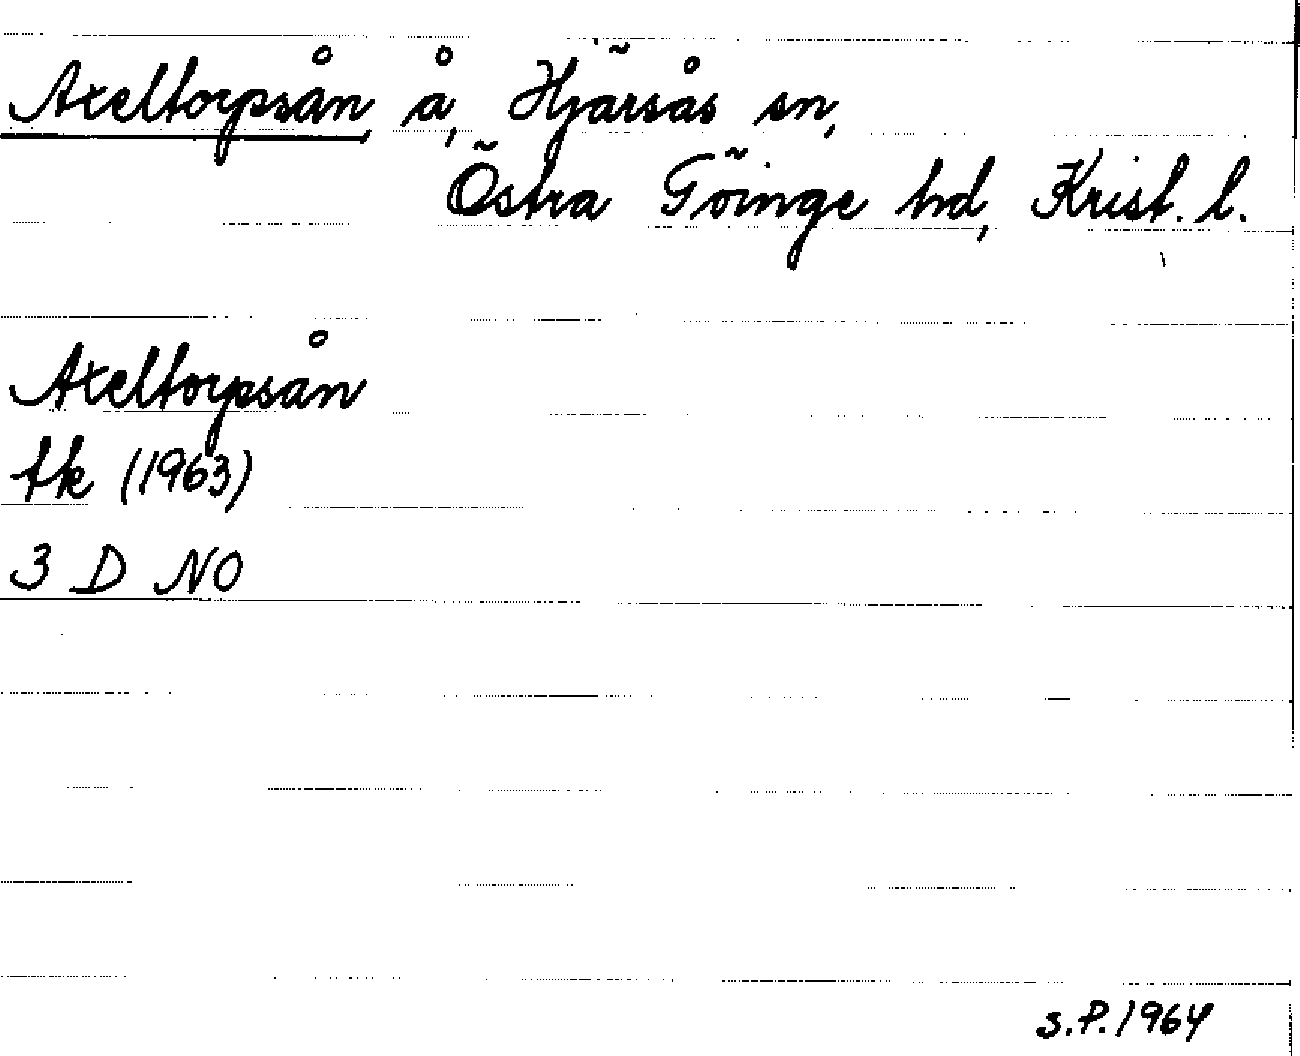 Axeltorpsån, å, Hjärsås sn,
Östra Göinge hd, Krist. l.
Axeltorpsån
tk (1963)
3 D NO
s.P. 1964